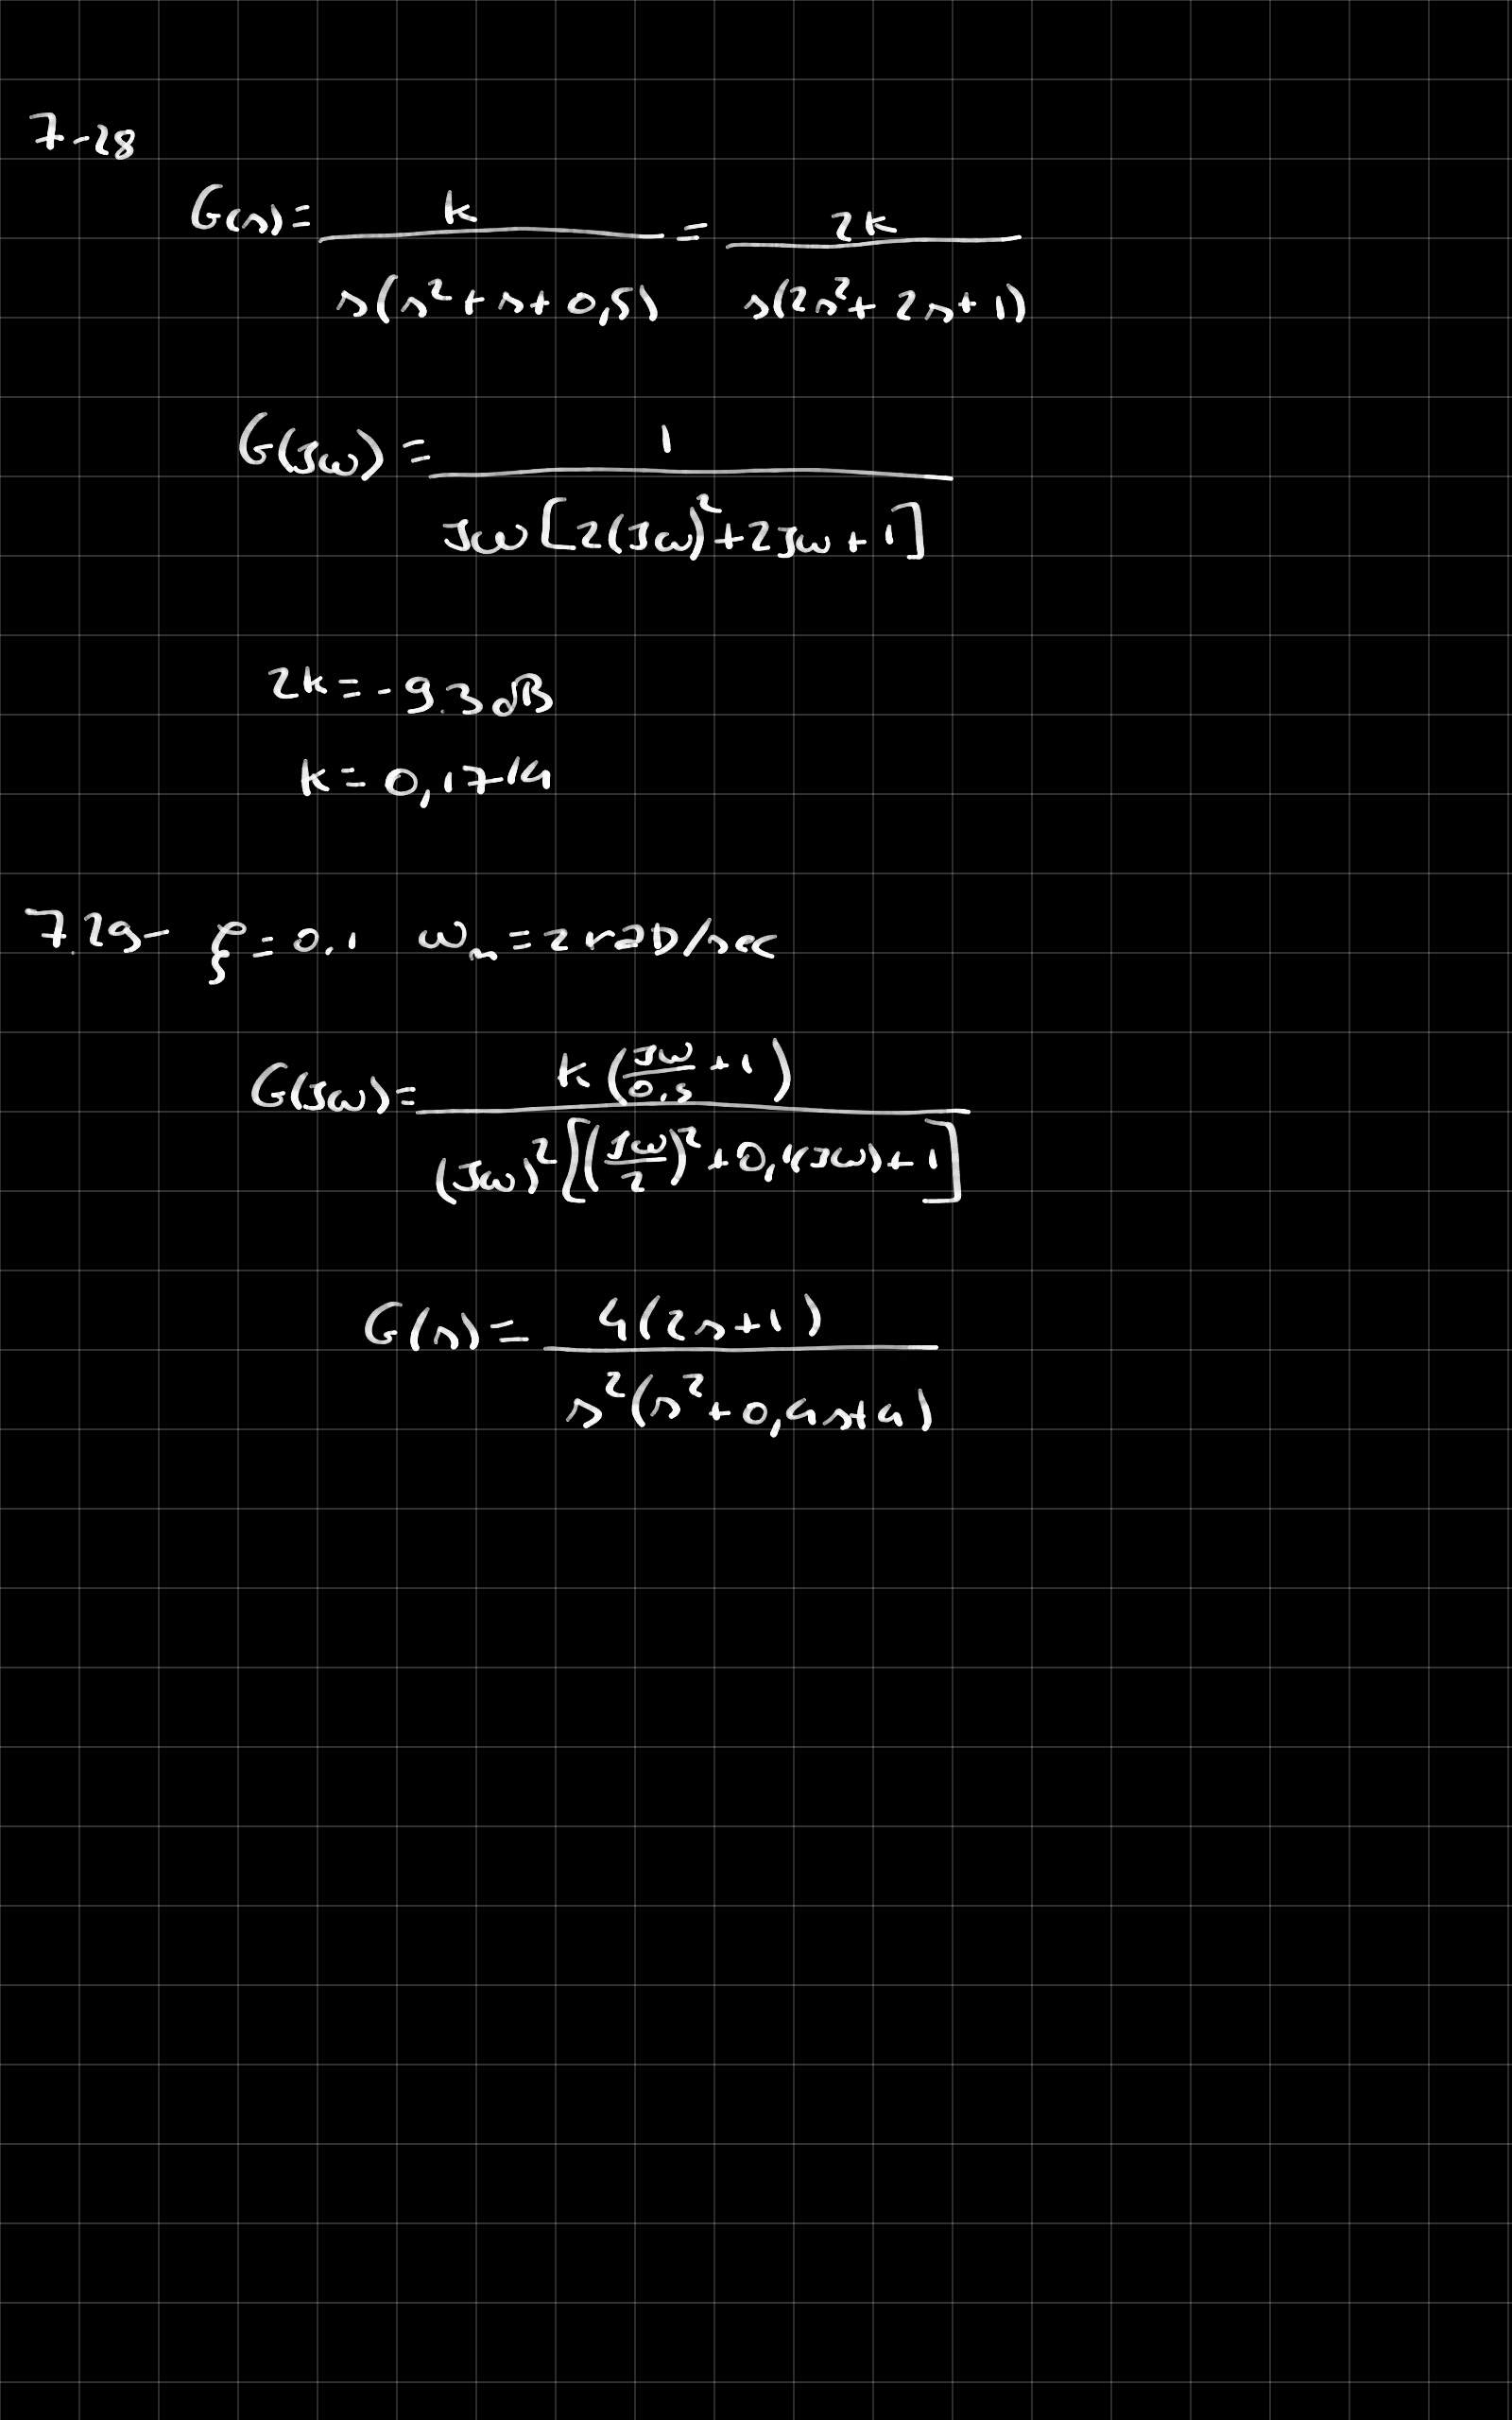 7-28
G(s) = k / s(s² + s + 0,5) = 2k / s(2s² + 2s + 1)
G(Jω) = 1 / Jω[2(Jω)² + 2Jω + 1]
2k = -9.3 dB
k = 0,1714
7.29- ξ = 0.1 ωn = 2 rad/sec
G(Jω) = k(Jω/0,5 + 1) / (Jω)²[(Jω/2)² + 0,1(Jω) + 1]
G(s) = 4(2s+1) / s²(s² + 0,4s + 4)